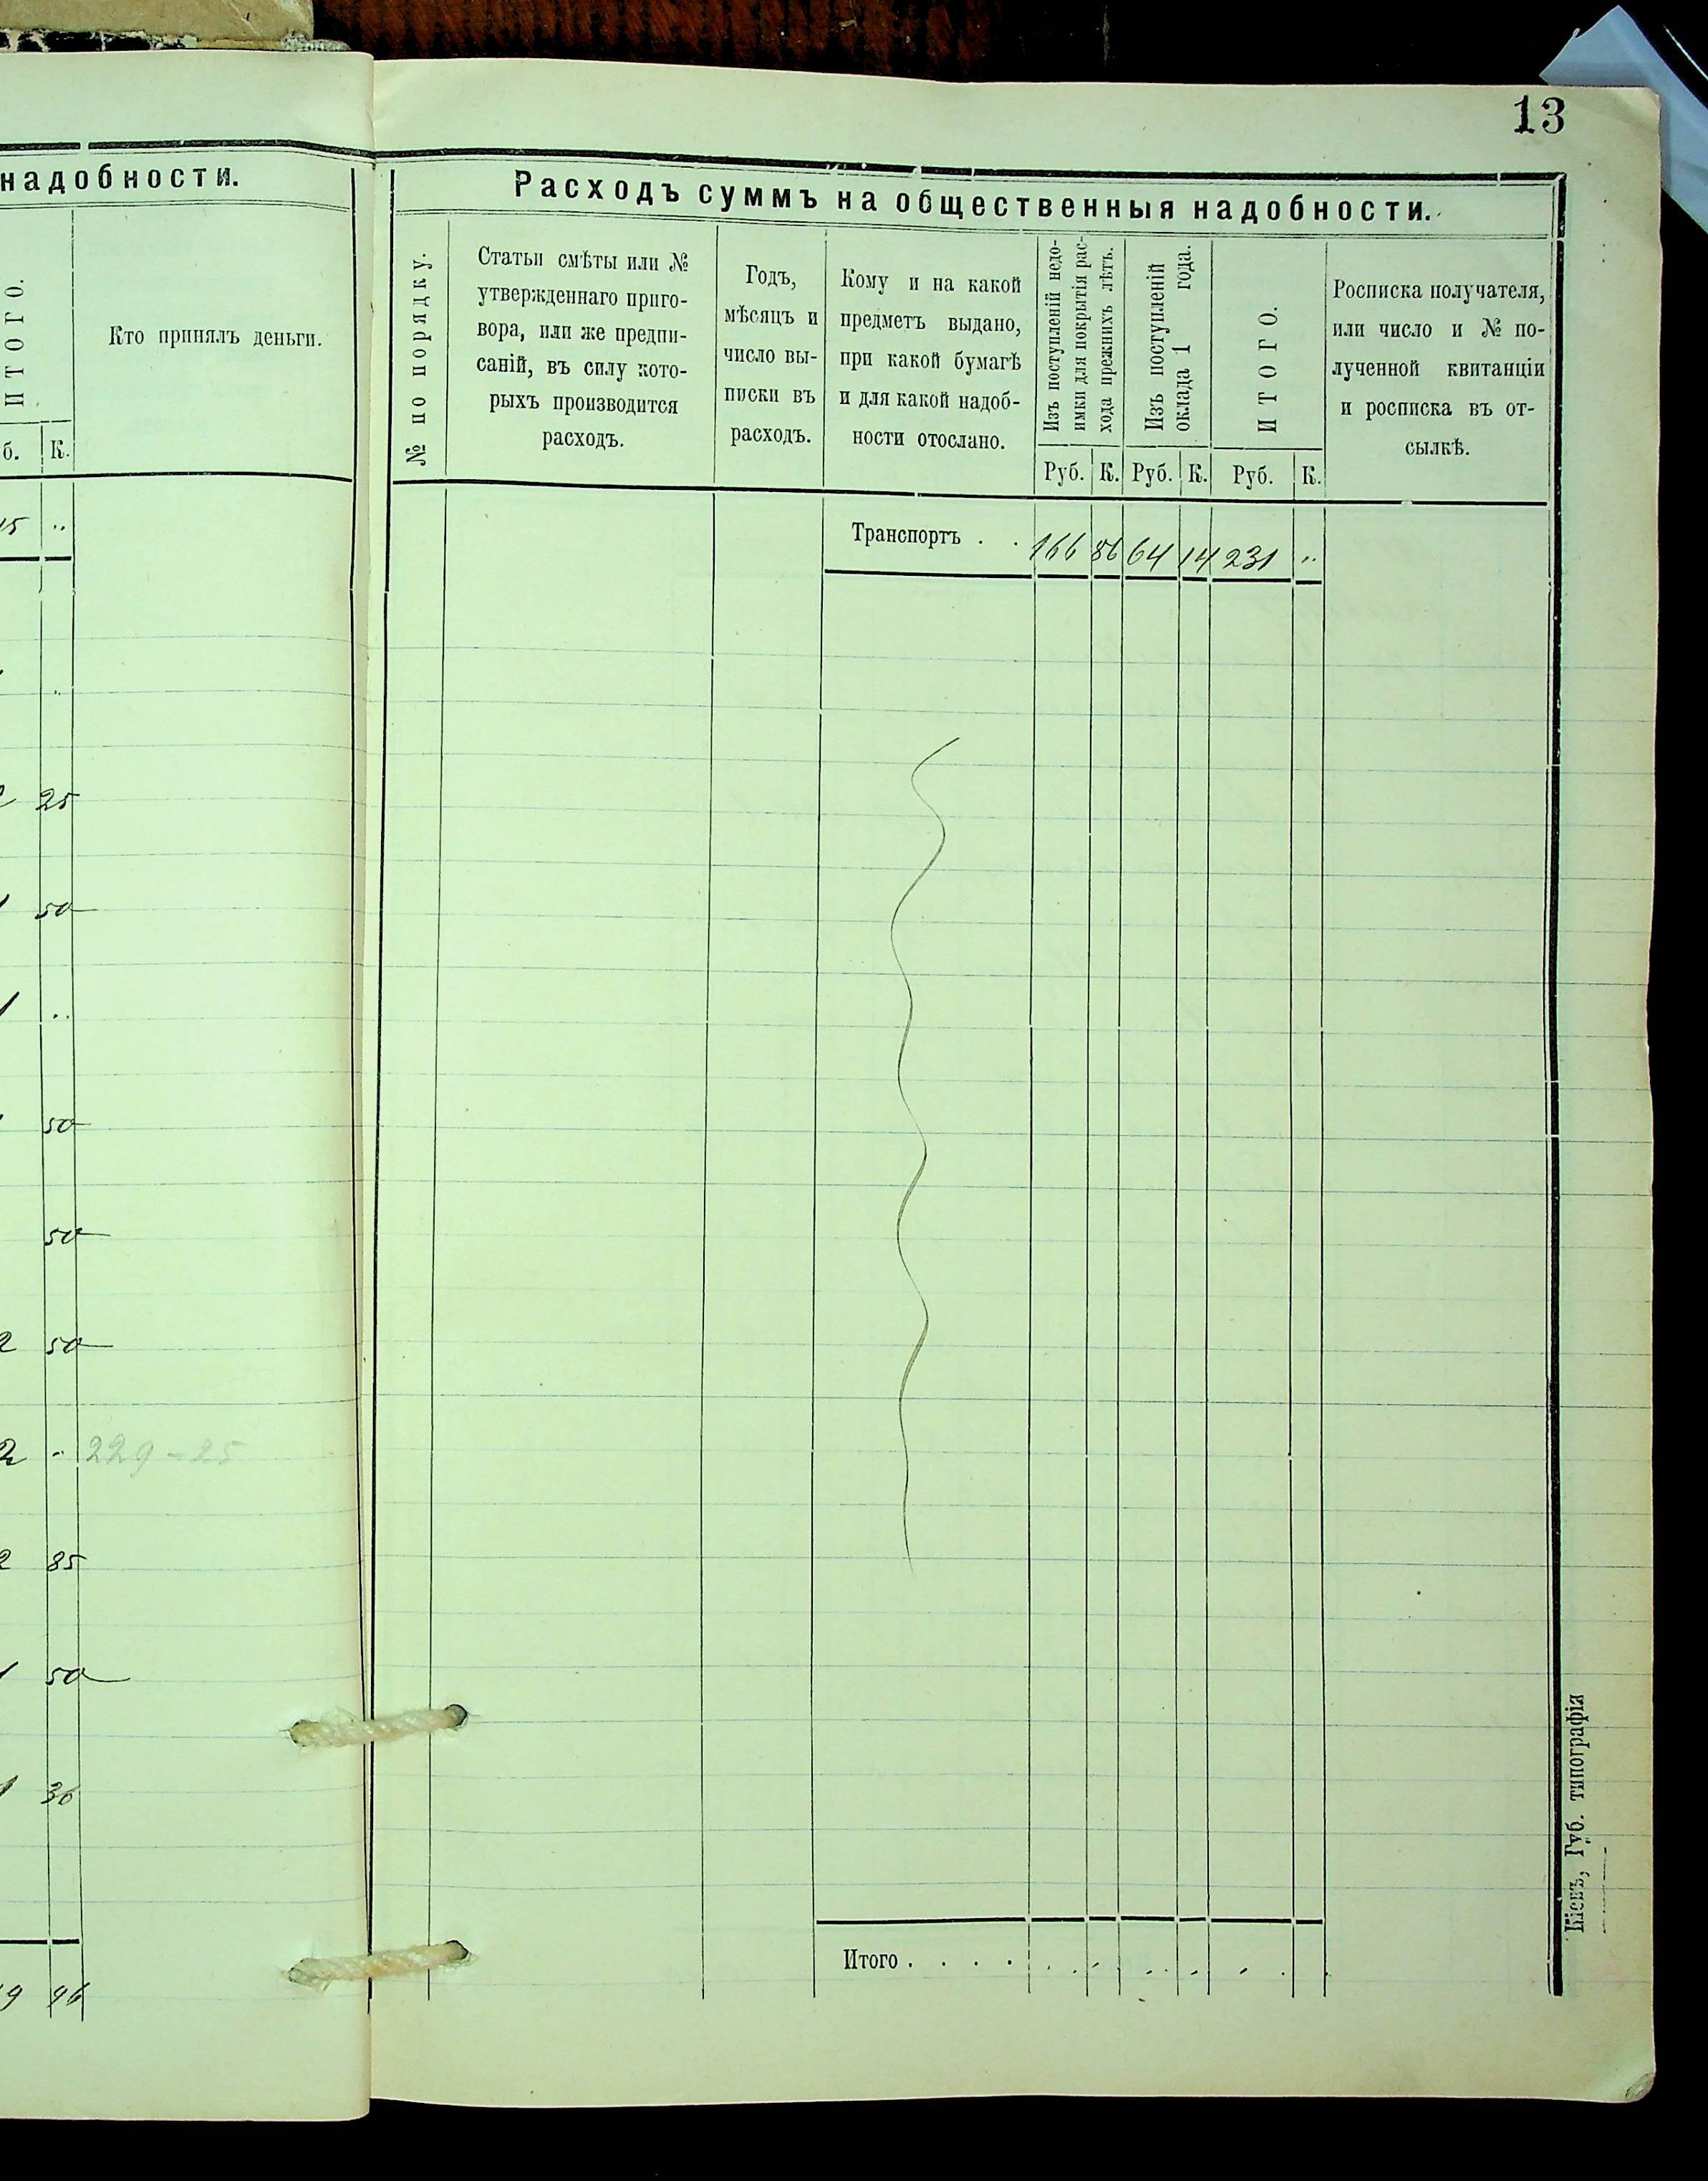 13
надобности.
И Т О Г О.
Кто принялъ деньги.
б. К.
15 ..
..
25
50
1 ..
50
50
2 50
2 .. 229-25
2 85
1 50
1 36
9 96
Расходъ суммъ на общественныя надобности.
№ по порядку.
Статьи смѣты или №
утвержденнаго приго-
вора, или же предпи-
саній, въ силу кото-
рыхъ производится
расходъ.
Годъ,
мѣсяцъ и
число вы-
писки въ
расходъ.
Кому и на какой
предметъ выдано,
при какой бумагѣ
и для какой надоб-
ности отослано.
Изъ поступленій недо-
имки для покрытія рас-
хода прежнихъ лѣтъ.
Изъ поступленій
оклада 1 года.
И Т О Г О.
Росписка получателя,
или число и № по-
лученной квитанціи
и росписка въ от-
сылкѣ.
Руб. К. Руб. К. Руб. К.
Транспортъ . . 166 86 64 14 231 ..
Итого . . . .
Кіевъ, Губ. типографія